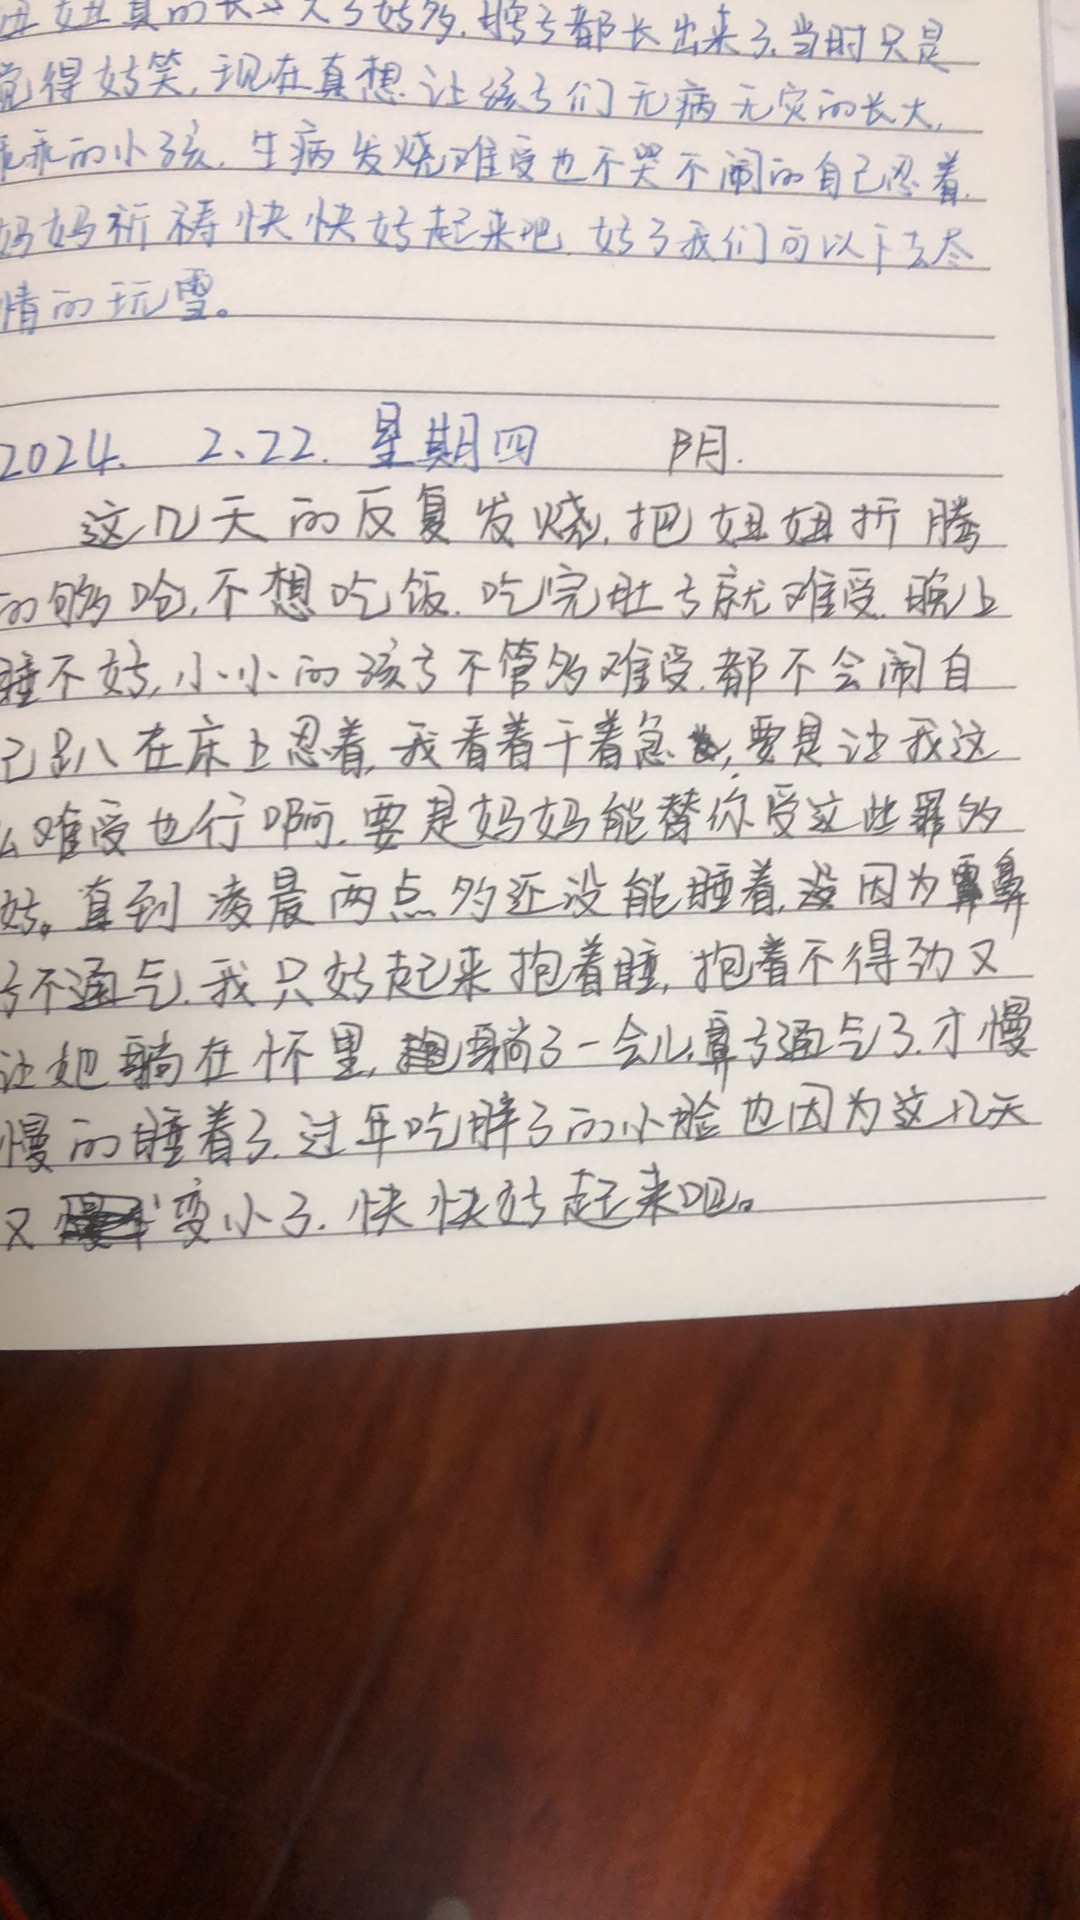 妞妞真的长大了好多,膀子都长出来了,当时只是
觉得好笑,现在真想让孩子们无病无灾的长大,
乖乖的小孩,生病发烧难受也不哭不闹的自己忍着,
妈妈祈祷快快好起来吧,好了我们可以下去尽
情的玩雪。
2024. 2、22. 星期四 阴.
这几天的反复发烧,把妞妞折腾
的够呛,不想吃饭,吃完肚子就难受,晚上
睡不好,小小的孩子不管多难受,都不会闹自
己趴在床上忍着,我看着干着急,要是让我这
么难受也行啊,要是妈妈能替你受这些罪多
好。直到凌晨两点多还没能睡着,因为鼻
子不通气,我只好起来抱着睡,抱着不得劲又
让她躺在怀里,躺了一会儿,鼻子通气了,才慢
慢的睡着了,过年吃胖了的小脸也因为这几天
又变小了,快快好起来吧。